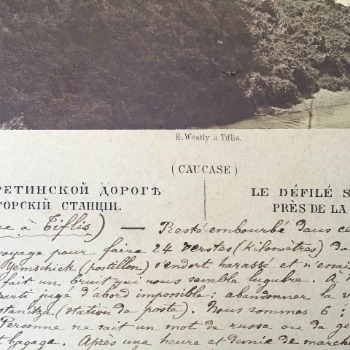 E. Westly à Tiflis.
(CAUCASE)
РЕТИНСКОЙ ДОРОГѢ
ГОРСКІЙ СТАНЦІИ.
LE DÉFILÉ S
PRÈS DE LA
e à Tiflis) — Resté embourbé dans ce
voyage pour faire 24 verstes (kilomètres) d
Yemschick (postillon) s'endort harassé et n'
fait un bruit qui nous sembla lugubre. A
route jugé d'abord impossible. abandonner la v
stantzia (station de poste). Nous sommes 6 :
Personne ne sait un mot de russe ou de ge
bagage. Après une heure et demie de marche